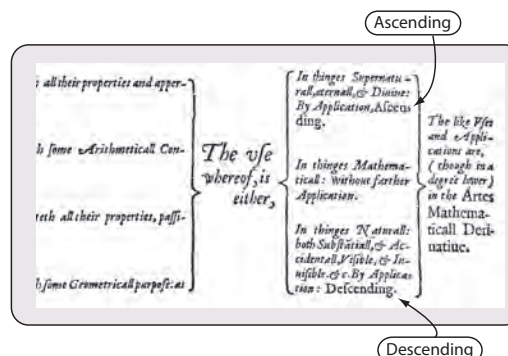 Ascending
all their properties and apper-
h some Arithmeticall Con-
reth all their properties, passi-
h some Geometricall purpose: as
The vse
whereof, is
either,
In thinges Supernatu-
rall, æternall, & Diuine:
By Application, Ascen
ding.
In thinges Mathema-
ticall: without farther
Application.
In thinges Naturall:
both Substãtiall, & Ac-
cidentall, Visible, & In-
uisible. &c. By Applica-
tion: Descending.
The like Vses
and Appli-
cations are,
(though in a
degree lower)
in the Artes
Mathema-
ticall Deri-
uatiue.
Descending